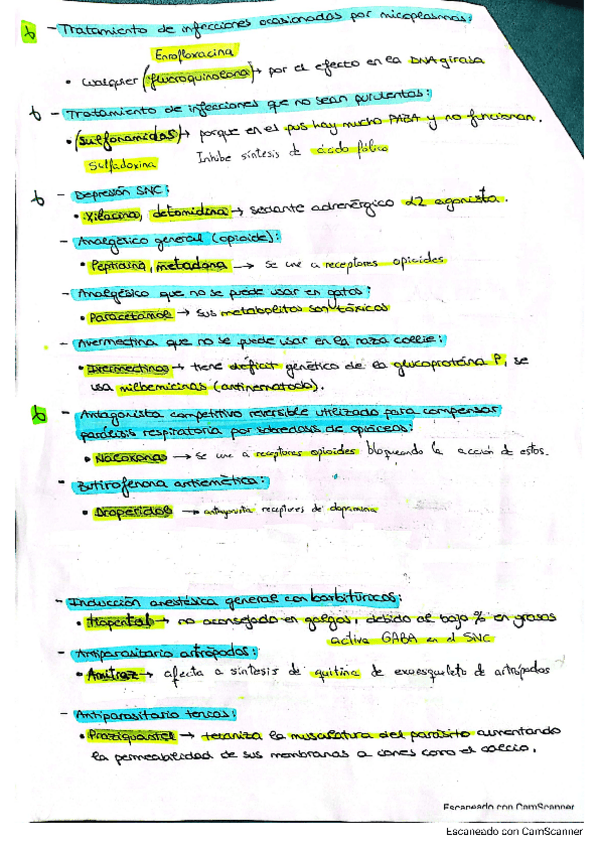 - Tratamiento de infecciones ocasionadas por micoplasmas:
Enrofloxacina
• Cualquier (fluoroquinolona) → por el efecto en la DNA girasa
- Tratamiento de infecciones que no sean purulentas:
• (sulfonamidas) → porque en el pus hay mucho PABA y no funcionan.
Sulfadoxina Inhibe síntesis de ácido fólico
- Depresión SNC:
• Xilacina, detomidina → sedante adrenérgico α2 agonista.
- Analgésico general (opioide):
• Peptidina, metadona → se une a receptores opioides
- Analgésico que no se puede usar en gatos:
• Paracetamol → sus metabolitos son tóxicos
- Avermectina que no se puede usar en la raza collie:
• Ivermectinas → tiene déficit genético de la glucoproteína P, se
usa milbemicinas (antinematodo).
- Antagonista competitivo reversible utilizado para compensar
parálisis respiratoria por sobredosis de opiáceos:
• Naloxona → se une a receptores opioides bloqueando la acción de estos.
- Butirofenona antiemética:
• Droperidol → antagonista receptores de dopamina
- Inducción anestésica general con barbitúricos:
• tiopental → no aconsejado en galgos, debido al bajo % en grasas
activa GABA en el SNC
- Antiparasitario artrópodos:
• Amitraz → afecta a síntesis de quitina de exoesqueleto de artrópodos
- Antiparasitario tenias:
• Praziquantel → tetaniza la musculatura del parásito aumentando
la permeabilidad de sus membranas a iones como el calcio.
Escaneado con CamScanner
Escaneado con CamScanner